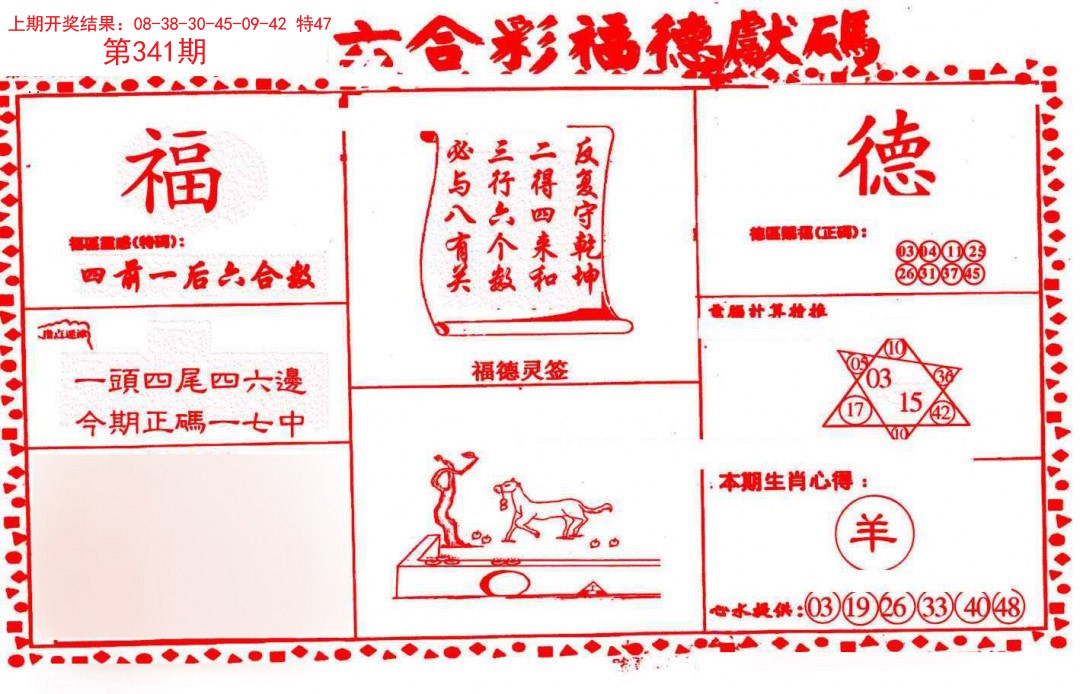 上期开奖结果：08-38-30-45-09-42 特47
第341期
六合彩福德獻碼
福
福區靈感(特碼)：
四前一后六合数
指点迷津
一頭四尾四六邊
今期正碼一七中
反复守乾坤
二得四来和
三行六个数
必与八有关
福德灵签
德
德區賜福(正碼)：
03 04 11 25
26 31 37 45
電腦計算檢推
10
05 03 36
17 15 42
10
本期生肖心得：
羊
心水提供：03 19 26 33 40 48